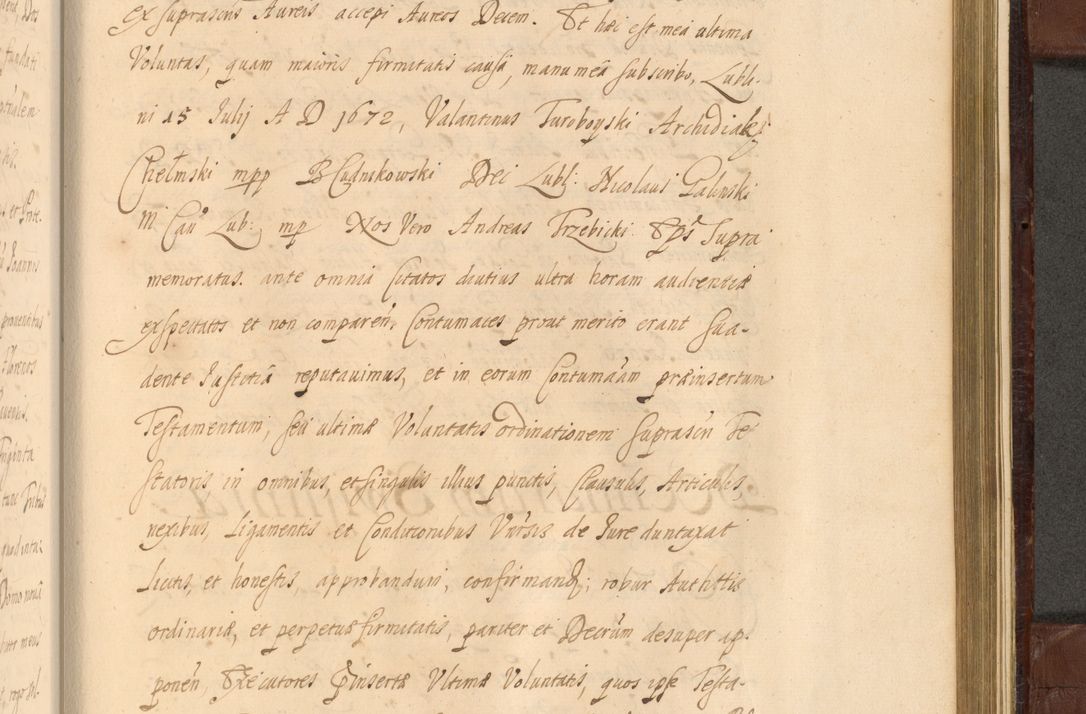 ex suprascris Aureis accepi Aureos Decem. Et hæc est mea ultima
Voluntas, quam maioris firmitatis causa, manu mea subscribo, Lubli-
ni 15 Iulij A D 1672, Valantinus Turoboyski Archidiak
Chełmski mpp B Cudnikowski Dei Lubl: Nicolaus Galinski
M Can Lub: mp Nos Vero Andreas Trzebicki Eps Supra
memoratus. ante omnia Citatos diutius ultra horam audientiæ
expectatos et non comparen. Contumaces prout merito erant Sua-
dente Iustitia reputauimus, et in eorum Contumaam præinsertum
Testamentum, seu ultimæ Voluntatis ordinationem suprascri Te
statoris in omnibus, et singulis illius punctis, Clausulis, Articulis,
nexibus, Ligamentis et Conditionibus Vnrsis de Iure duntaxat
licitis, et honestis, approbandum, confirmand; robur Authttis
ordinariæ, et perpetuæ firmitatis, pariter et Decrum desuper ap-
ponen, Executores Pinsertæ Vltimæ Voluntatis, quos ipse Testa-